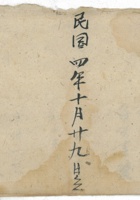 民國四年十月廿九日立